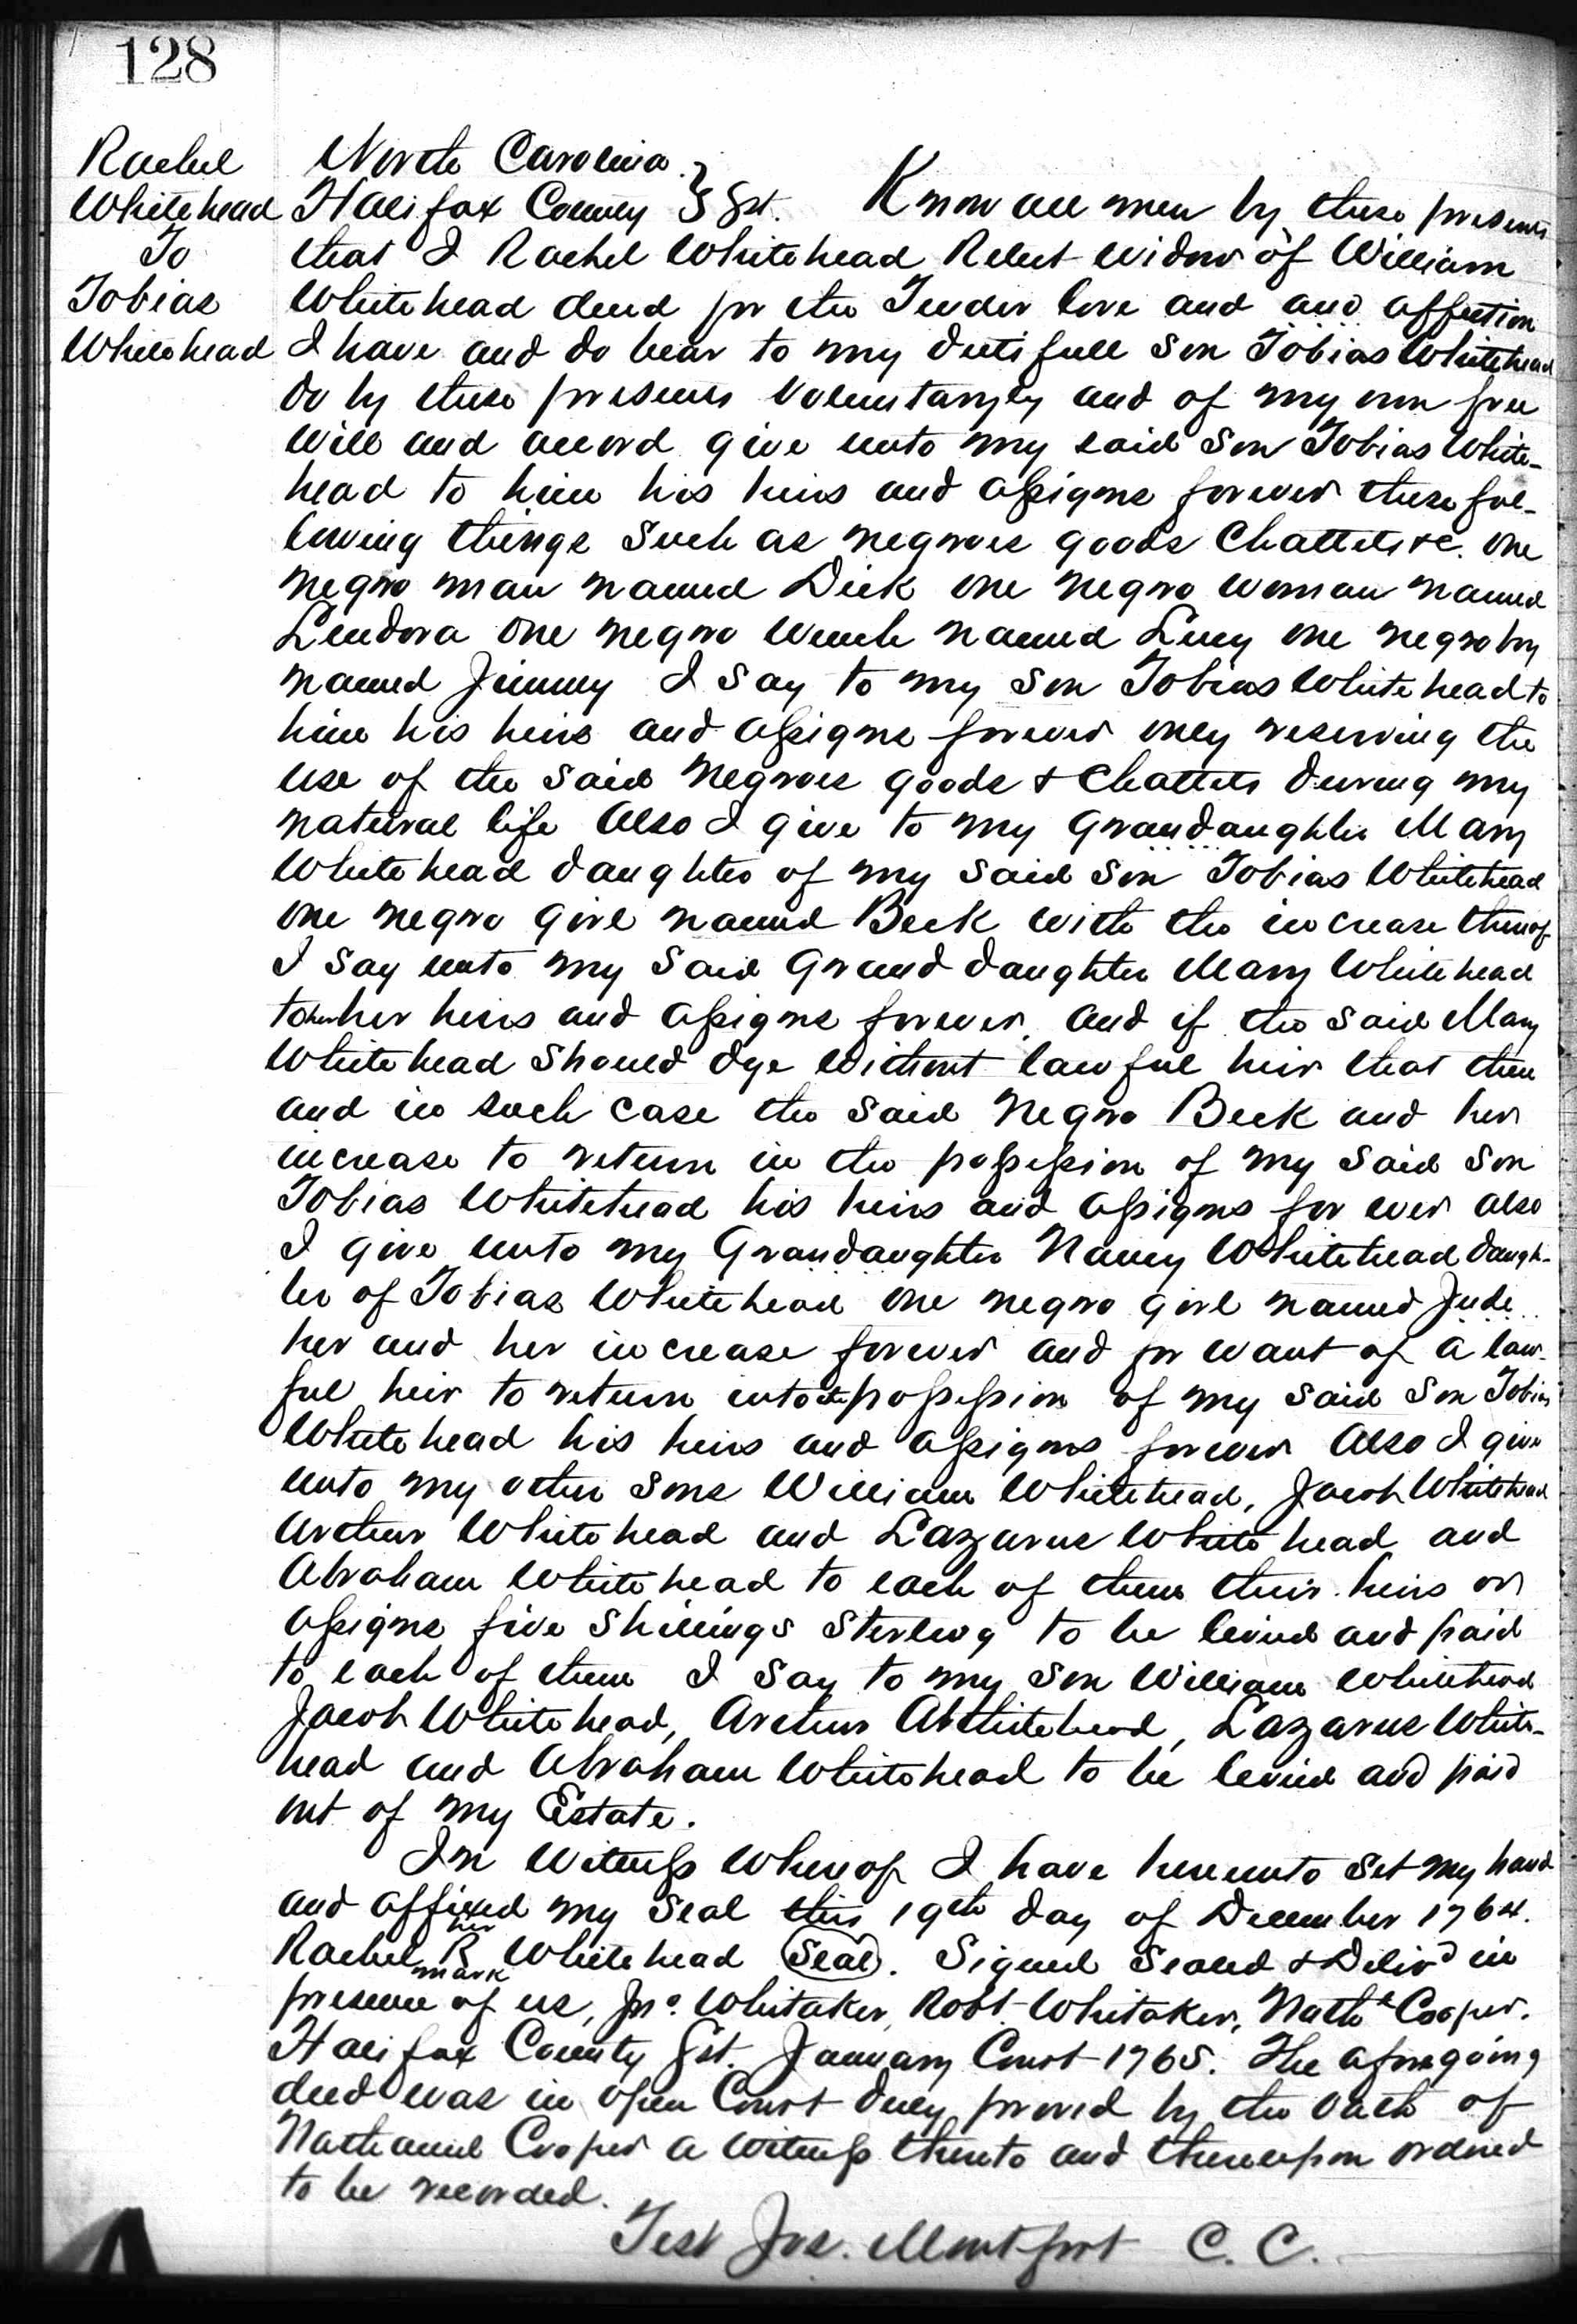 128
Rachel
Whitehead
To
Tobias
Whitehead
North Carolina
Halifax County } Sst. Know all men by these presents
that I Rachel Whitehead Relict Widow of William
Whitehead decd for the Tender love and and affection
I have and do bear to my dutifull Son Tobias Whitehead
do by these presents Voluntaryly and of my own free
will and accord give unto my said Son Tobias White-
head to him his heirs and assigns forever these fol-
lowing things Such as negroes goods Chattels &c. one
negro man named Dick one negro woman named
Lendora one negro wench named Lucy one negro boy
named Jimmy I say to my Son Tobias Whitehead to
him his heirs and assigns forever only reserving the
use of the said Negroes goods & Chattels during my
natural life Also I give to my Grandaughter Mary
Whitehead daughter of my said Son Tobias Whitehead
one negro Girl named Beck with the increase thereof
I say unto my said Grand daughter Mary Whitehead
to her her heirs and assigns forever. and if the said Mary
Whitehead should dye without lawful heir that then
and in such case the said Negro Beck and her
increase to return in the possession of my said Son
Tobias Whitehead his heirs and assigns for ever also
I give unto my Grandaughter Nancy Whitehead daugh-
ter of Tobias Whitehead one negro girl named Jude
her and her increase forever and for want of a law-
ful heir to return into the possession of my said Son Tobias
Whitehead his heirs and assigns forever Also I give
unto my other Sons William Whitehead, Jacob Whitehead
Arthur Whitehead and Lazarus Whitehead and
Abraham Whitehead to each of them their heirs or
assigns five shillings Sterling to be levied and paid
to each of them I say to my Son William Whitehead
Jacob Whitehead, Arthur Whitehead, Lazarus White-
head and Abraham Whitehead to be levied and paid
out of my Estate.
In Witness Whereof I have hereunto set my hand
and affixed my Seal this 19th day of December 1764.
Rachel her R mark Whitehead (Seal). Signed Sealed & Delivd in
presence of us, Jno. Whitaker, Robt. Whitaker, Nathl Cooper.
Halifax County Sst. January Court 1765. The aforegoing
deed was in Open Court duly proved by the Oath of
Nathaniel Cooper a Witness thereto and thereupon ordered
to be recorded.
Test Jos. Montfort C. C.